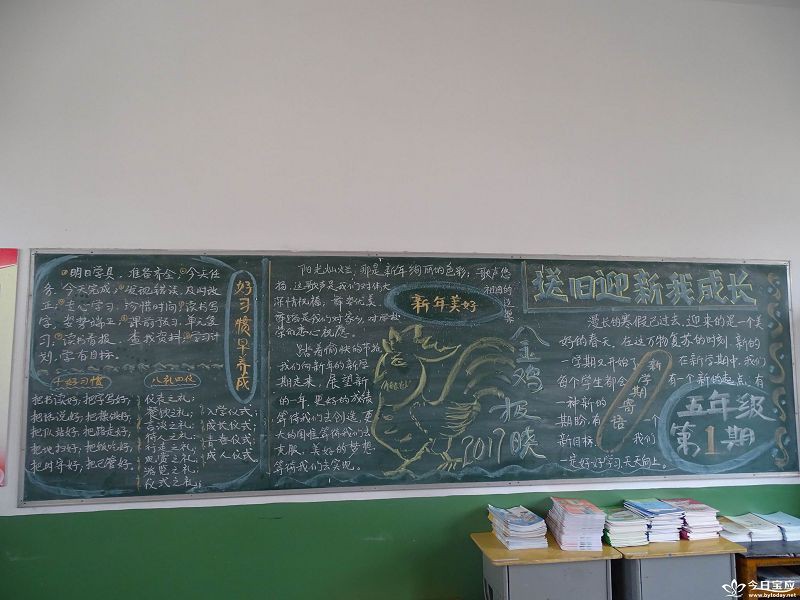 明日学具,准备齐全,今天任
务,今天完成,发现错误,及时改
正,专心学习,珍惜时间,读书写
字,姿势端正,课前预习,单元复
习,读书看报,查找资料,学习计
划,学有目标。
好习惯早养成
十好习惯
把书读好,把字写好,
把话说好,把操做好,
把队站好,把路走好,
把地扫好,把饭吃好,
八礼四仪
仪表之礼;
餐饮之礼;
言谈之礼;
待人之礼;
行走之礼;
观赏之礼;
游览之礼;
仪式之礼;
入学仪式;
成长仪式;
青春仪式;
成人仪式
阳光灿烂,那是新年绚丽的色彩;歌声悠
扬,这歌声是我们对伟大
祖国的
深情祝福,舞姿优美,
新年美好
踏着愉快的节拍,
我们向新年的新学
期走来,展望新
的一年,更好的成绩
等待我们去创造,更
大的困难等待我们去
克服,美好的梦想
等待我们去实现。
金鸡报晓
2017
送旧迎新我成长
漫长的寒假已过去,迎来的是一个美
好的春天,在这万物复苏的时刻,新的
一学期又开始了
在新学期中,我们
每个学生都会
有一个新的起点,有
一种新的
期盼,有
一个
新目标,
我们
是好好学习,天天向上。
新学期寄语
五年级
第1期
今日宝应
www.bytoday.net